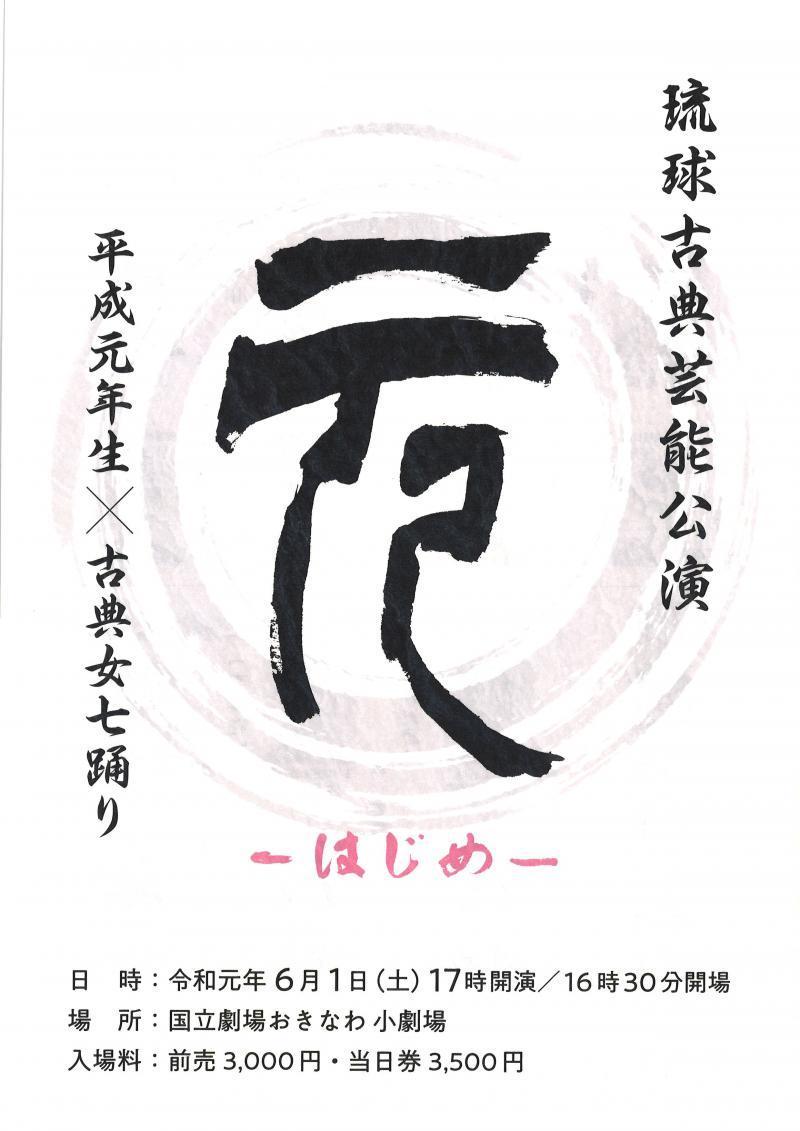 琉球古典芸能公演
元
平成元年生×古典女七踊り
－はじめ－
日　時：令和元年 6月1日（土）17時開演／16時30分開場
場　所：国立劇場おきなわ 小劇場
入場料：前売 3,000円・当日券 3,500円